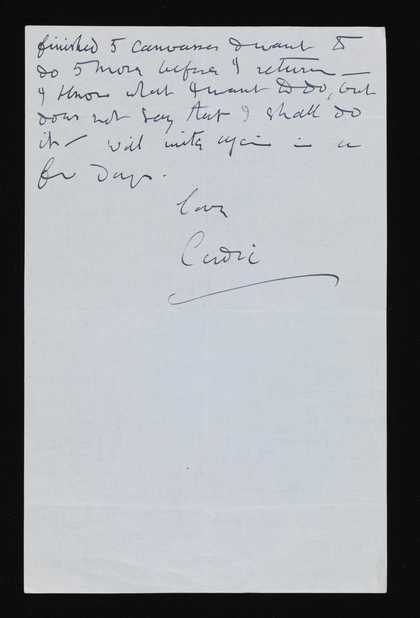 finished 5 canvasses & want to
do 5 more before I return —
I know what I want to do, but
does not say that I shall do
it – will write again in a
few days.
Love
Cedric